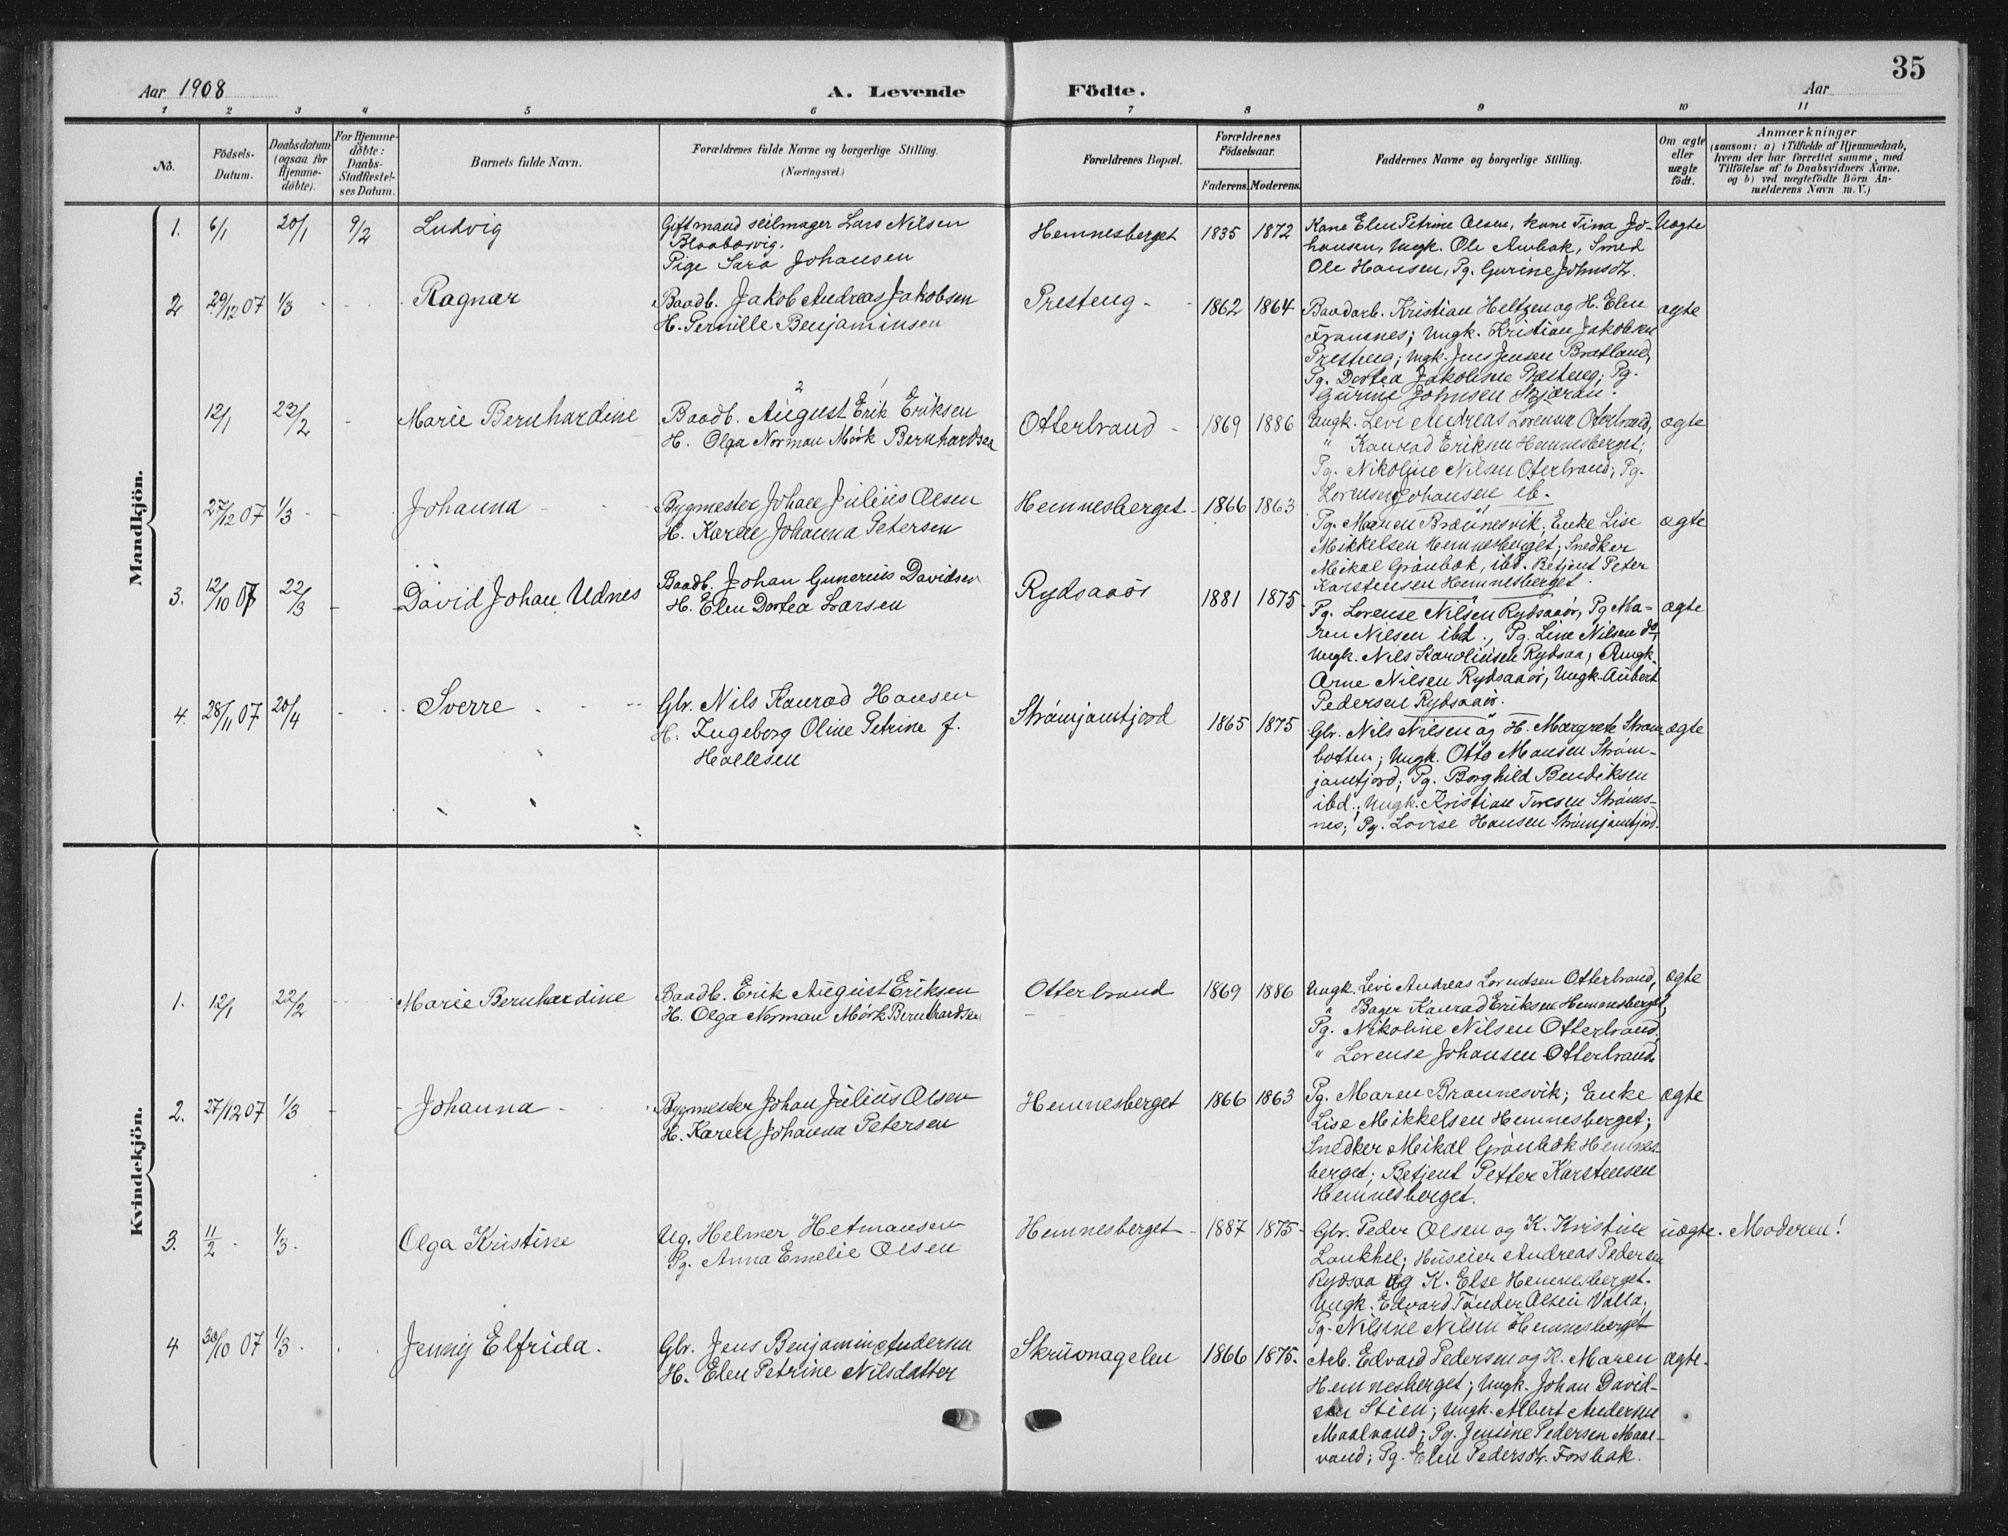 35
Aar 1908
A. Levende
Födte.
Aar
1 2 3 4 5 6 7 8 9 10 11
No.
Födsels-
Datum.
Daabsdatum
(ogsaa for
Hjemme-
döbte).
For Hjemme-
döbte:
Daabs-
Stadfæstel-
ses Datum.
Barnets fulde Navn.
Forældrenes fulde Navne og borgerlige Stilling.
(Næringsvei.)
Forældrenes Bopæl.
Forældrenes
Födselsaar.
Faderens. Moderens.
Faddernes Navne og borgerlige Stilling.
Om ægte
eller
uægte
født.
Anmærkninger
(saasom: a) i Tilfælde af Hjemmedaab,
hvem der har forrettet samme, med
Tilföielse af to Daabsvidners Navne,
og b) ved uægtefödte Börn An-
melderens Navn m. V.)
Mandkjön.
1. 6/1 20/1 9/2 Ludvig
Gift mand seilmager Lars Nilsen
Blaabærvig.
Pige Sara Johansen
Hemnesberget 1835 1872
Kone Elen Petrine Olsen, kone Tina Jo-
hansen, Ungk. Ole Aubak, Smed
Ole Hansen, Pg. Gurine Johnsdt.
Uægte
2 29/12 07 1/3 Ragnar
Baadb. Jakob Andreas Jakobsen
H. Pernille Benjaminsen
Presteng 1862 1864
Baadarb. Kristian Heltzen og H. Elen
Fransnes; Ungk. Kristian Jakobsen
Presteng; Ungk. Jens Jensen Bratland,
Pg. Dortea Jakobine Presteng; Pg.
Gurine Johnsen Skjæran.
ægte
12/1 22/2 Marie Bernhardine
Baadb. August Erik Eriksen
H. Olga Norman Mörk Bernhardsen
Otterbrand 1869 1886
Ungk. Levi Andreas Lorensen Oterbrand,
" Konrad Eriksen Hemnesberget;
Pg. Nikoline Nilsen Oterbrand; Pg.
Lorense Johansen ib.
ægte
27/12 07 1/3 Johanna
Bygmester Johan Julius Olsen
H. Karen Johanna Petersen
Hemnesberget 1866 1863
Pg. Maren Braunesvik; Enke Lise
Mikkelsen Hemnesberget; Snedker
Mikal Grönbæk, ibd. Betjent Peter
Karstensen Hemnesberget.
ægte
3. 12/10 07 22/3 David Johan Udnes
Baadb. Johan Gunerius Davidsen
H. Elen Dortea Larsen
Rydsaaös 1881 1875
Pg. Lorense Nilsen Rydsaaör, Pg Ma-
ren Nilsen ibd., Pg. Line Nilsen do,
Ungk. Nils Karolinsen Rydsaa, Ungk.
Arne Nilsen Rydsaaör, Ungk. Aubert
Pedersen Rydsaaör.
ægte
4. 28/11 07 20/4 Sverre
Gbr. Nils Konrad Hansen
H. Ingeborg Oline Petrine f.
Hallesen
Strömjamtjord 1865 1875
Gbr. Nils Nilsen og H. Margrete Ström-
botten; Ungk. Otto Monsen Ström-
jamtjord; Pg. Borghild Bendiksen
ibd.; Ungk. Kristian Toresen Ströms-
nes; Pg. Lovise Hansen Strömjamtjord.
ægte
Kvindekjön.
1. 12/1 22/2 Marie Bernhardine
Baadb. Erik August Eriksen
H. Olga Norman Mörk Bernhardsen
Otterbrand 1869 1886
Ungk. Levi Andreas Lorentsen Otterbrand,
" Bager Konrad Eriksen Hemnesberget,
Pg. Nikoline Nilsen Otterbrand,
" Lorense Johansen Otterbrand.
ægte
2. 27/12 07 1/3 Johanna
Bygmester Johan Julius Olsen
H. Karen Johanna Petersen
Hemnesberget 1866 1863
Pg. Maren Braunesvik; Enke
Lise Mikkelsen Hemnesberget;
Snedker Mikal Grönbæk Hemnes-
berget; Betjent Petter Karstensen
Hemnesberget.
ægte
3. 11/2 1/3. Olga Kristine
Ug. Helmer Hetmansen
Pg. Anna Emelie Olsen
Hemnesberget 1887 1875
Gbr. Peder Olsen og K. Kristine
Laukhel; Huseier Andreas Pedersen
Rydsaa og K. Else Hemnesberget.
Ungk. Edvard Tönder Olsen Valla,
Pg. Nilsine Nilsen Hemnesberget
uægte. Moderen!
4 30/10 07 1/3. Jenny Elfrida.
Gbr. Jens Benjamin Andersen
H. Elen Petrine Nilsdatter
Skrusnagelen 1866 1875.
Arb. Edvard Pedersen og K. Maren
Hemnesberget; Ungk. Johan David-
sen Stien; Ungk. Albert Andersen
Maalvand; Pg. Jensine Pedersen Maal-
vand; Pg. Elen Pedersdt. Forsbak.
ægte.